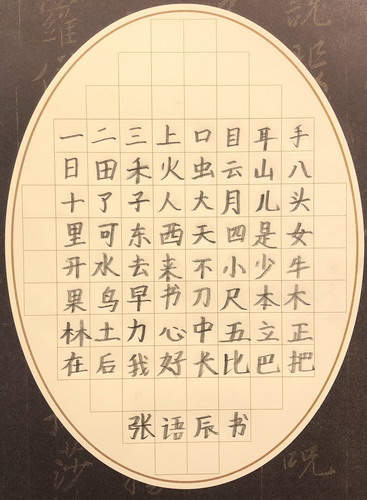 一二三上口目耳手
日田禾火虫云山八
十了子人大月儿头
里可东西天四是女
开水去来不小少牛
果鸟早书刀尺本木
林土力心中五立正
在后我好长比巴把
张语辰书